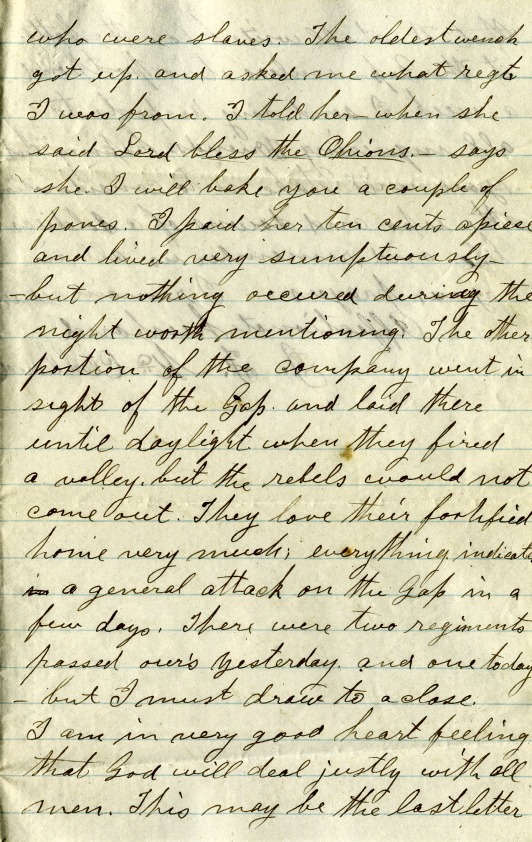 who were slaves. The oldest wench
got up and asked me what regt
I was from. I told her - when she
said Lord bless the Ohions. - says
she I will bake you a couple of
pones. I paid her ten cents apiece
and lived very sumptuously -
- but nothing occured during the
night worth mentioning. The other
portion of the company went in
sight of the Gap. and laid there
until daylight when they fired
a volley. but the rebels would not
come out. They love their fortified
home very much; everything indicate
is a general attack on the Gap in a
few days. There were two regiments
passed our's yesterday. and one today
- but I must draw to a close.
I am in very good heart feeling
that God will deal justly with all
men. This may be the last letter